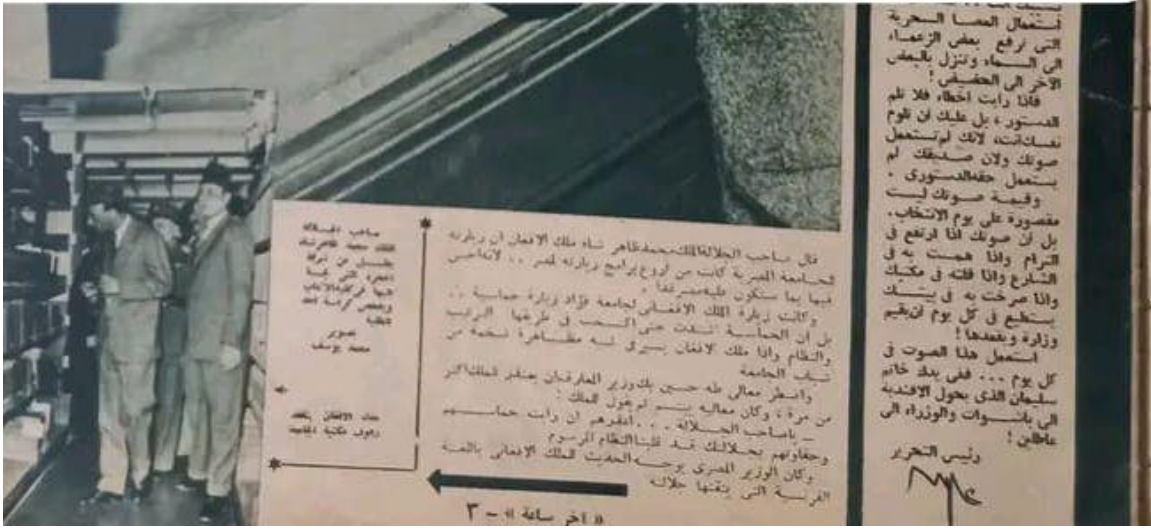 استعمال العصا السحرية
التى ترفع بعض الزعماء
الى السماء وتنزل بالبعض
الآخر الى الحضيض !
فاذا رايت اخطاء فلا تلم
الدستور ، بل عليك ان تلوم
نفسك انت، لانك لم تستعمل
صوتك ولان صديقك لم
يستعمل حقه الدستورى .
وقيمة صوتك ليست
مقصورة على يوم الانتخاب.
بل ان صوتك اذا ارتفع فى
الترام واذا همست به فى
الشارع واذا قلته فى مكتبك
واذا صرخت به فى بيتك
يستطيع فى كل يوم ان يقيم
وزارة ويقعدها !
استعمل هذا الصوت فى
كل يوم ... ففى يدك خاتم
سليمان الذى يحول الافندية
الى باشوات والوزراء الى
عاطلين !
رئيس التحرير
قال صاحب الجلالة الملك محمد ظاهر شاه ملك الافغان ان زيارته
للجامعة المصرية كانت من اروع برامج زيارته لمصر .. لانه احس
فيها بما ستكون عليه مصر غدا .
وكانت زيارة الملك الافغانى لجامعة فؤاد زيارة حماسية ..
بل ان الحماسة اشتدت حتى اكتسحت فى طريقها الترتيب
والنظام واذا ملك الافغان يسير فى شبه مظاهرة ضخمة من
شباب الجامعة
واضطر معالى طه حسين بك وزير المعارف ان يعتذر للملك اكثر
من مرة ، وكان معاليه يبتسم ثم يقول للملك :
ـ يا صاحب الجلالة ... اغفر لهم ان رايت حماستهم
وحفاوتهم بجلالتك قد قلبتا النظام المرسوم
وكان الوزير المصرى يوجه الحديث للملك الافغانى باللغة
الفرنسية التى يتقنها جلالته
صاحب الجلالة
الملك محمد ظاهر شاه
تصوير
محمد يوسف
ملك الافغان يتفقد
رفوف مكتبة الجامعة
« آخر ساعة » - ٣